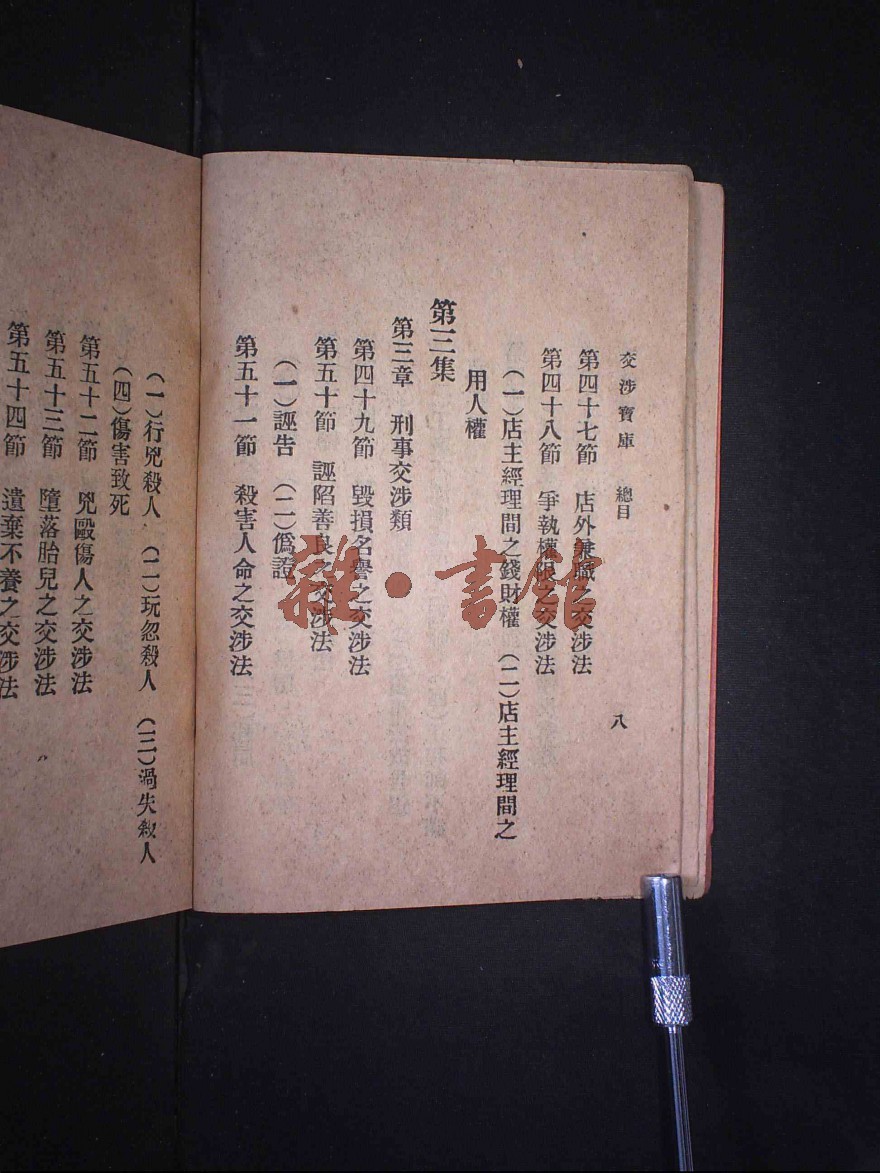 交涉寶庫 總目 八
第四十七節 店外兼職之交涉法
第四十八節 爭執權限之交涉法
(一)店主經理間之錢財權 (二)店主經理間之
用人權
第三集
第三章 刑事交涉類
第四十九節 毀損名譽之交涉法
第五十節 誣陷善良之交涉法
(一)誣告 (二)僞證
第五十一節 殺害人命之交涉法
(一)行兇殺人 (二)玩忽殺人 (三)過失殺人
(四)傷害致死
第五十二節 兇毆傷人之交涉法
第五十三節 墮落胎兒之交涉法
第五十四節 遺棄不養之交涉法
雜·書館